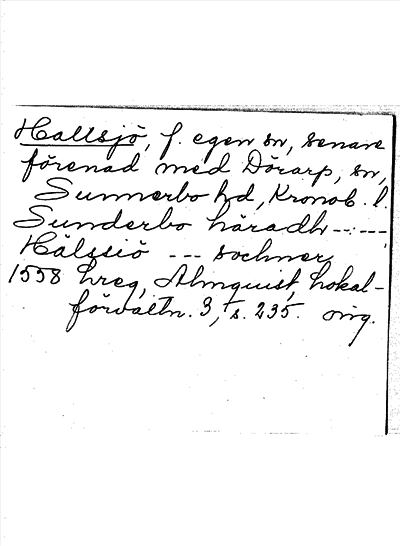 Hallsjö, f. egen sn, senare
förenad med Dörarp, sn,
Sunnerbo hd, Kronob. l.
Sunderbo häradh -----,
Hälssiö --- sochner
1558 hreg, Almquist, Lokal-
förvaltn. 3, s. 235. orig.